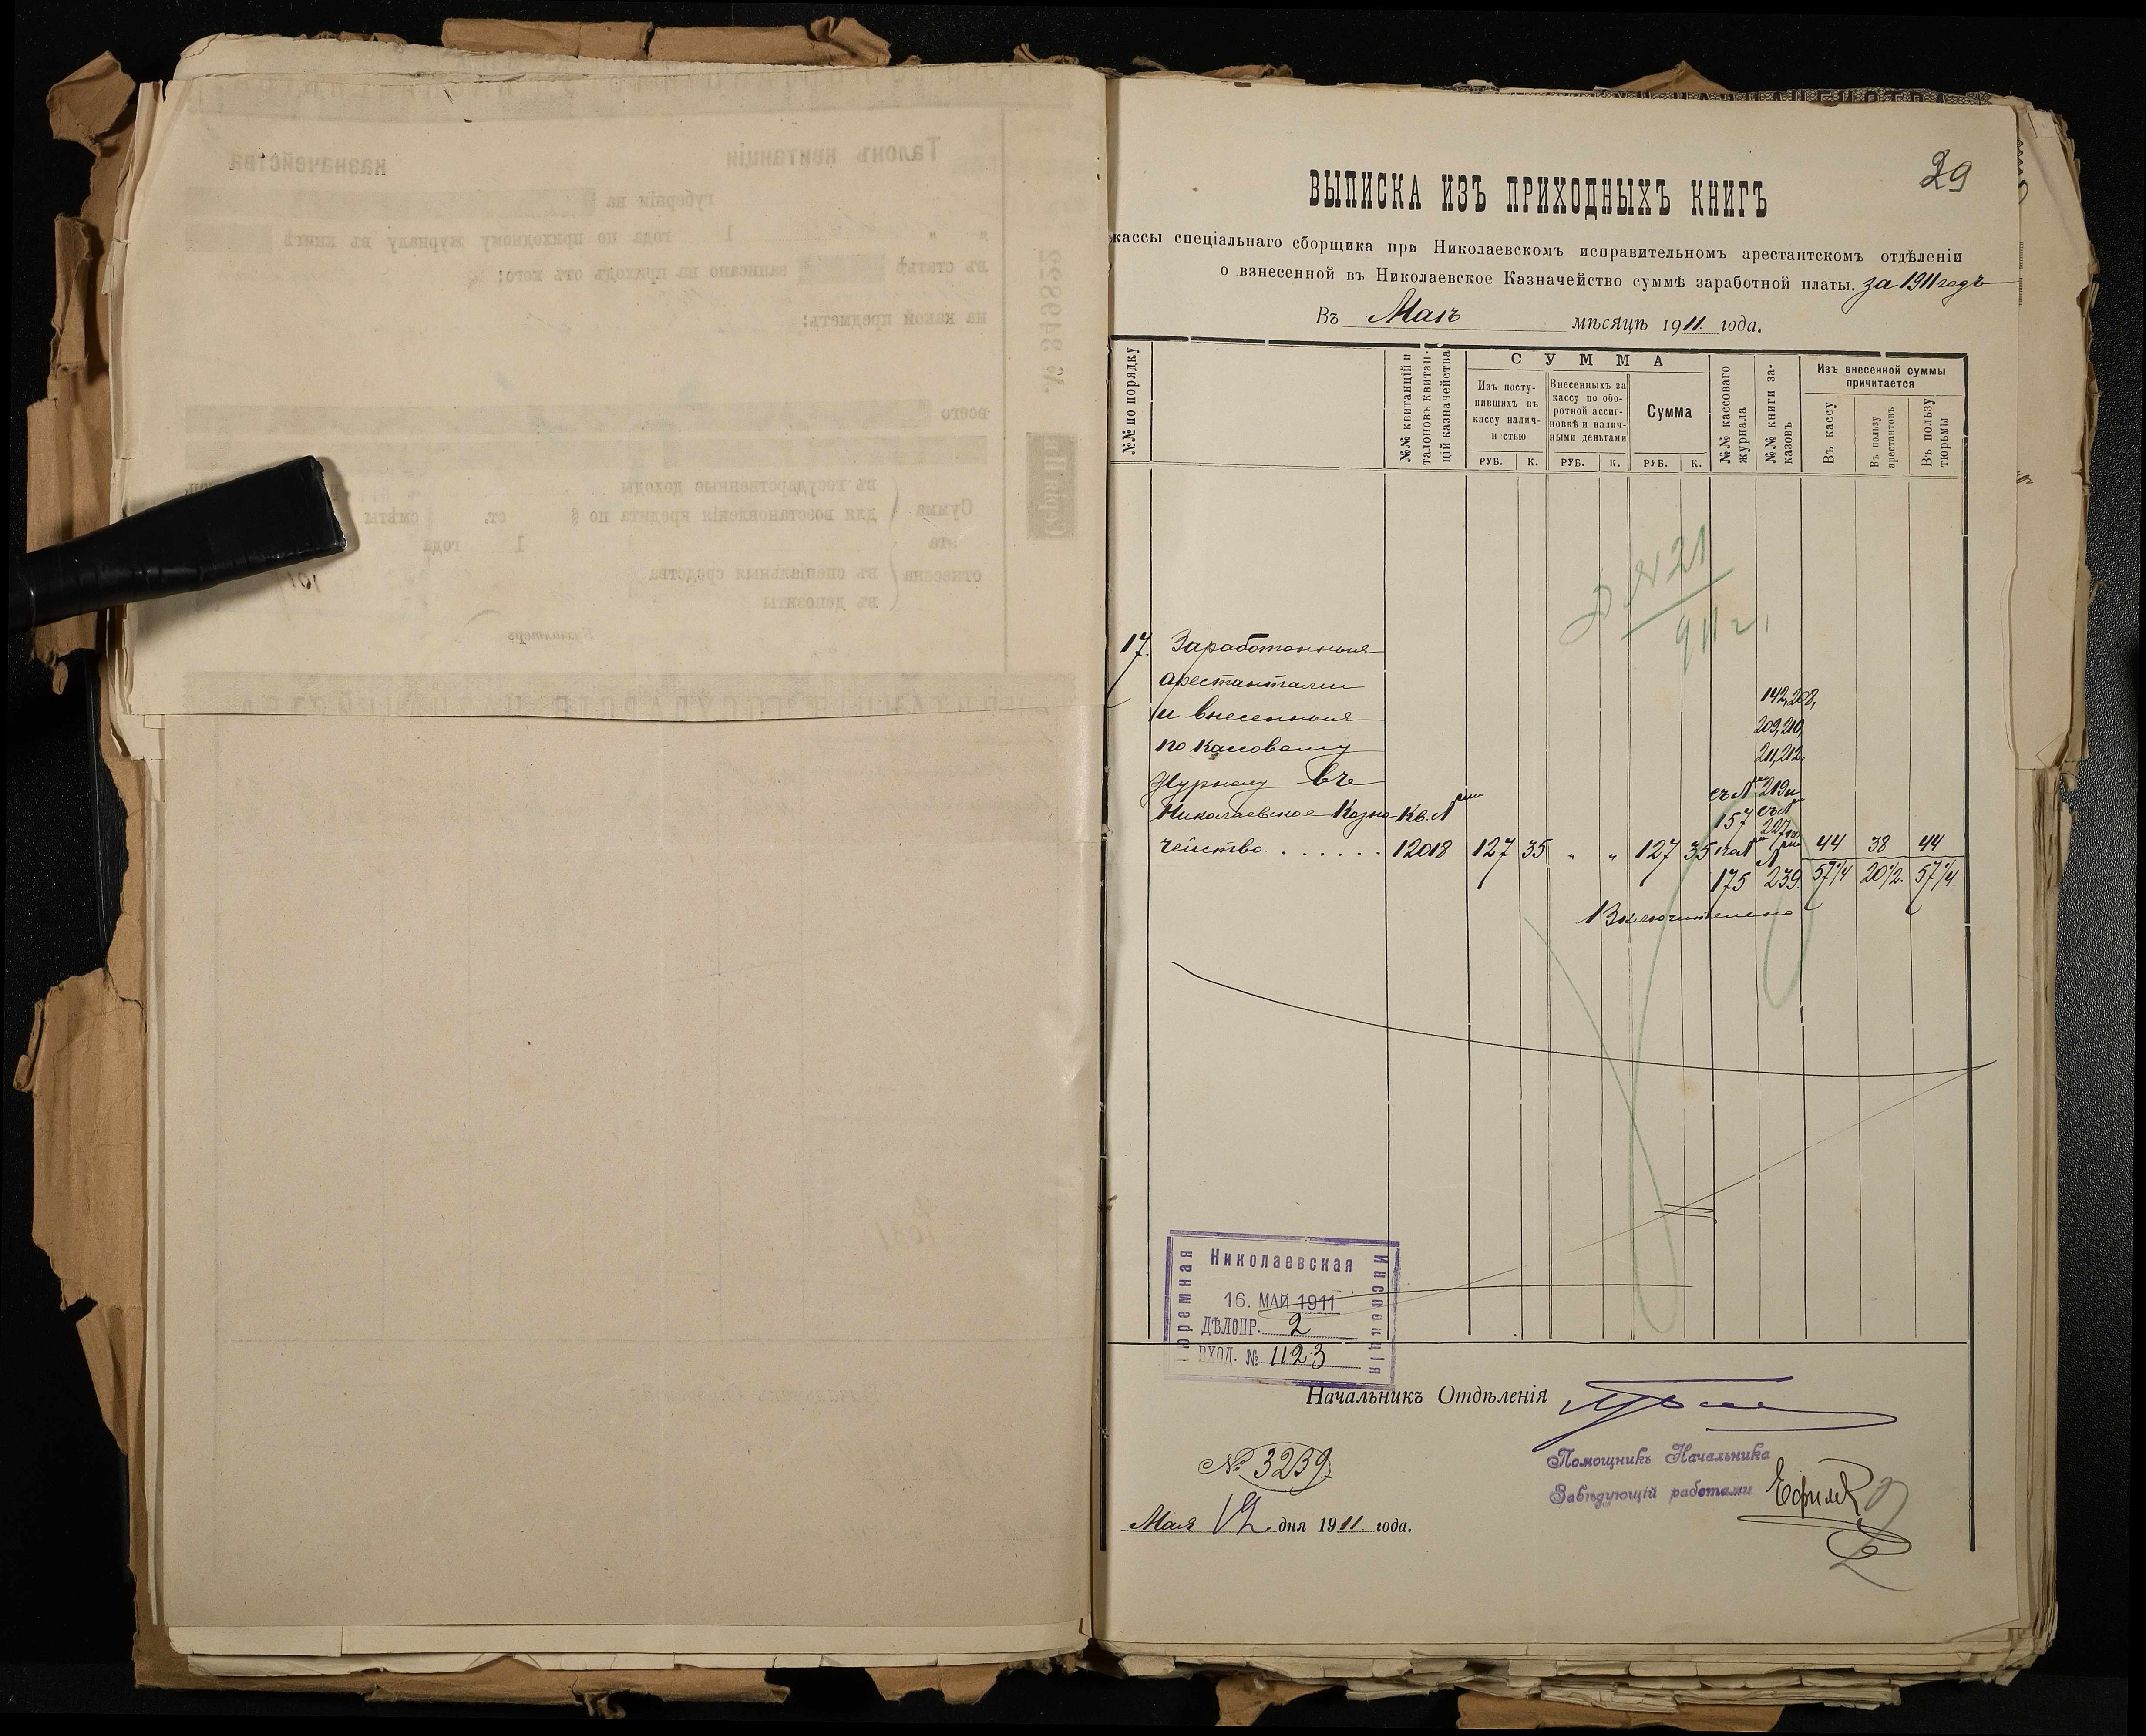 29
ВЫПИСКА ИЗЪ ПРИХОДНЫХЪ КНИГЪ
кассы спеціальнаго сборщика при Николаевскомъ исправительномъ арестантскомъ отдѣленіи
о взнесенной въ Николаевское Казначейство суммѣ заработной платы. за 1911 годъ
Въ Маѣ мѣсяцѣ 1911 года.
№№ по порядку
№№ квитанцій и талоновъ квитанцій казначейства
СУММА
Изъ поступившихъ въ кассу наличностью
Внесенныхъ за кассу по оборотной ассигновкѣ и наличными деньгами
Сумма
РУБ. К. РУБ. К. РУБ. К.
№№ кассоваго журнала
№№ книги заказовъ
Изъ внесенной суммы причитается
Въ кассу
Въ пользу арестантовъ
Въ пользу тюрьмы
№ 21
911 г.
17. Заработанныя
арестантами
и внесенныя
по кассовому
журналу въ
Николаевское Казна- Кв. №
чейство. . . . . . . 12018 127 35 „ „ 127 35
142, 208,
209, 210,
211, 212,
съ № 219 и
157 съ №
227 по
на № №
175 239.
44 38 44
57 1/4 20 1/2. 57 1/4.
Включительно
Николаевская
Тюремная
Инспекція
16. МАЙ 1911
ДѢЛОПР. 2
ВХОД. № 1123
Начальникъ Отдѣленія
№ 3239.
Помощникъ Начальника
Завѣдующій работами
Мая 12 дня 1911 года.
Талонъ квитанціи казначейства
губерніи на
„ „ 1 года по приходному журналу въ книгѣ
въ статьѣ записано на приходъ отъ кого:
на какой предметъ:
№ 349822
всего
Серія IIа
Сумма эта отнесена
въ государственные доходы
для возстановленія кредита по § ст. смѣты
1 года
въ спеціальныя средства
въ депозиты
Бухгалтеръ